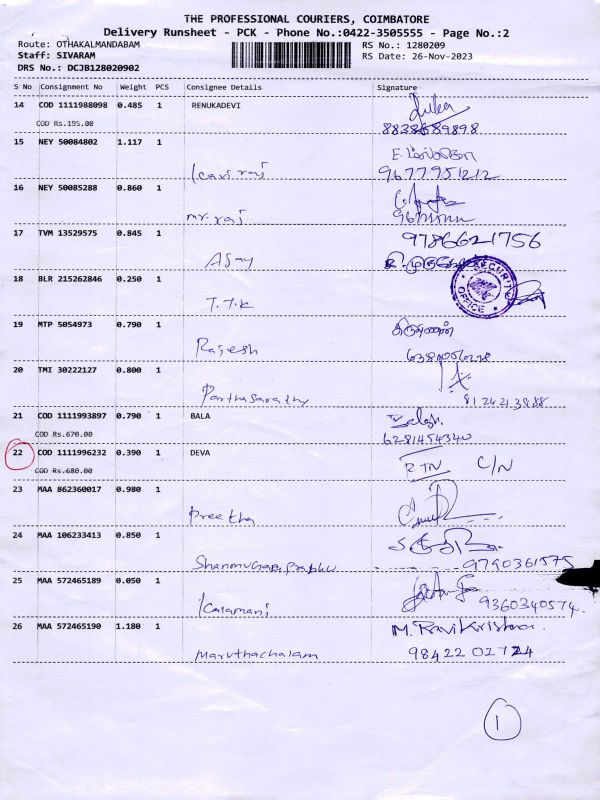 THE PROFESSIONAL COURIERS, COIMBATORE
Delivery Runsheet - PCK - Phone No.:0422-3505555 - Page No.:2
Route: OTHAKALMANDABAM
RS No.: 1280209
Staff: SIVARAM
RS Date: 26-Nov-2023
DRS No.: DCJB128020902
S No Consignment No Weight PCS Consignee Details Signature
14 COD 1111988098 0.485 1 RENUKADEVI
COD Rs.195.00
15 NEY 50084802 1.117 1
Kaviraj 9677951212
16 NEY 50085288 0.860 1
Mr. raj
17 TVM 13529575 0.845 1 9786621756
Ajay
SECURITY OFFICE
18 BLR 215262846 0.250 1
T.T.K
19 MTP 5054973 0.790 1
Rajesh
20 TMI 30222127 0.800 1
Parthasarathy
21 COD 1111993897 0.790 1 BALA
COD Rs.670.00 6281454340
22 COD 1111996232 0.390 1 DEVA RTN C/N
COD Rs.680.00
23 MAA 862360017 0.980 1
Preetha
24 MAA 106233413 0.850 1
9790361575
25 MAA 572465189 0.050 1
Kalamani 9360340574.
26 MAA 572465190 1.180 1 M. Ravikrishna.
Maruthachalam 9842202724
1